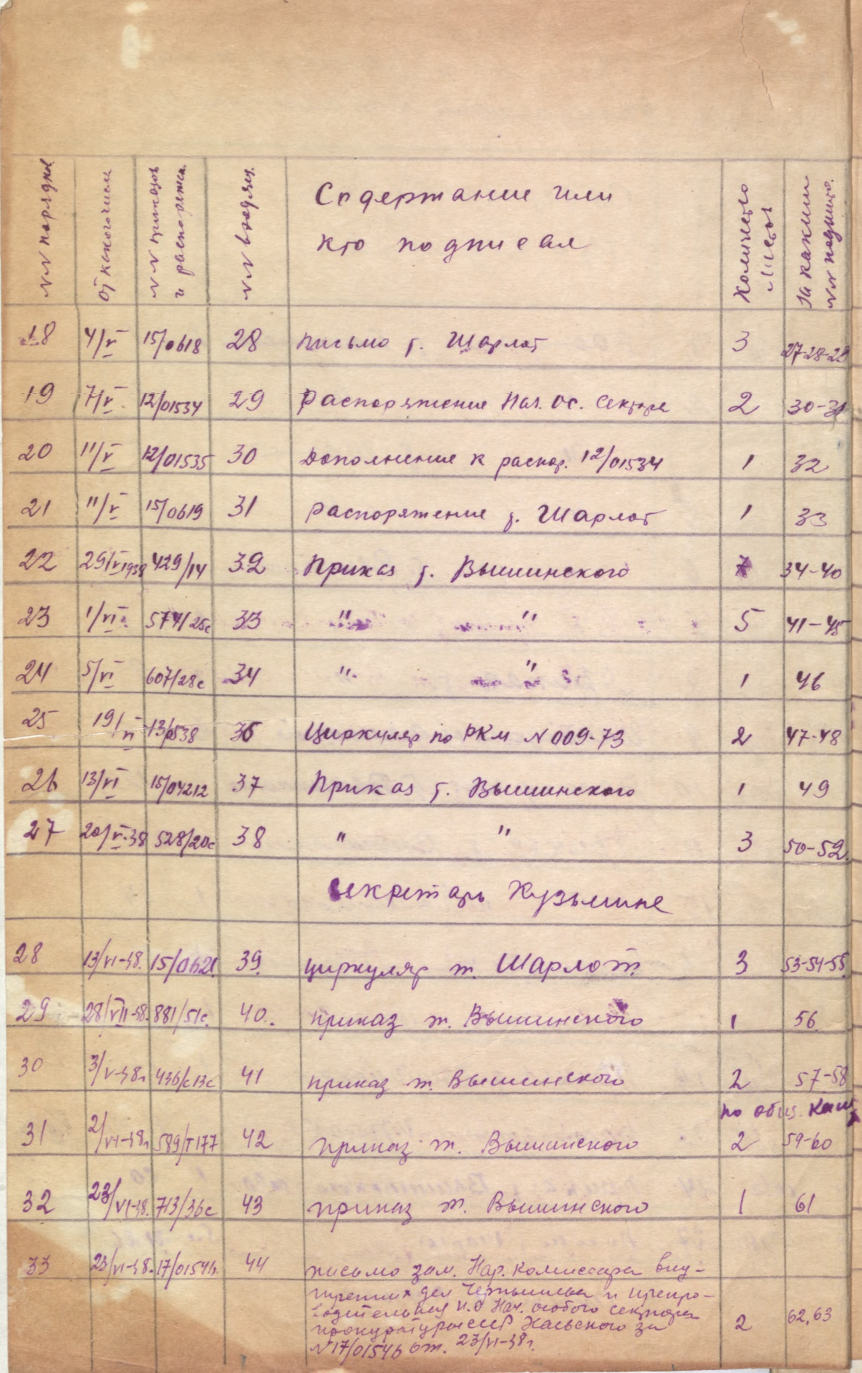 NN порядка От какого числа NN приказов и распоряж. NN входящ. Содержание или кто подписал Количество листов За какими NN подшито.
18 4/V 15/0618 28 Письмо т. Шарлот 3 27-28-29
19 7/V 12/01534 29 Распоряжение Нач. Ос. Сектора 2 30-31
20 11/V 12/01535 30 Дополнение к распор. 12/01534 1 32
21 11/V 15/0619 31 Распоряжение т. Шарлот 1 33
22 29/V 1938 429/14 32 Приказ т. Вышинского 7 34-40
23 1/VI 574/25с 33 " " 5 41-45
24 5/VI 607/28с 34 " " 1 46
25 19/VI 36 Циркуляр по РКМ N 009-73 2 47-48
26 13/VI 15/04212 37 Приказ т. Вышинского 1 49
27 20/V-38 528/20с 38 " " 3 50-52
Секретарь Кузьмина
28 13/VI-38. 15/0621 39. циркуляр т. Шарлот. 3 53-54-55
29 28/VII-38. 881/51с. 40. приказ т. Вышинского 1 56
30 3/V-38г 436/с13с 41 приказ т. Вышинского 2 57-58
по общ. канц
31 2/VI-38г 589/т177 42 приказ т. Вышинского 2 59-60
32 23/VI-38. 713/36с 43 приказ т. Вышинского 1 61
33 23/VI-38. 17/01546. 44 письмо зам. Нар. Комиссара вну-
тренних дел Чернышева и препро-
водительная И.О Нач. особого сектора
прокуратуры СССР за 2 62,63
N 17/01546 от. 23/VI-38г.